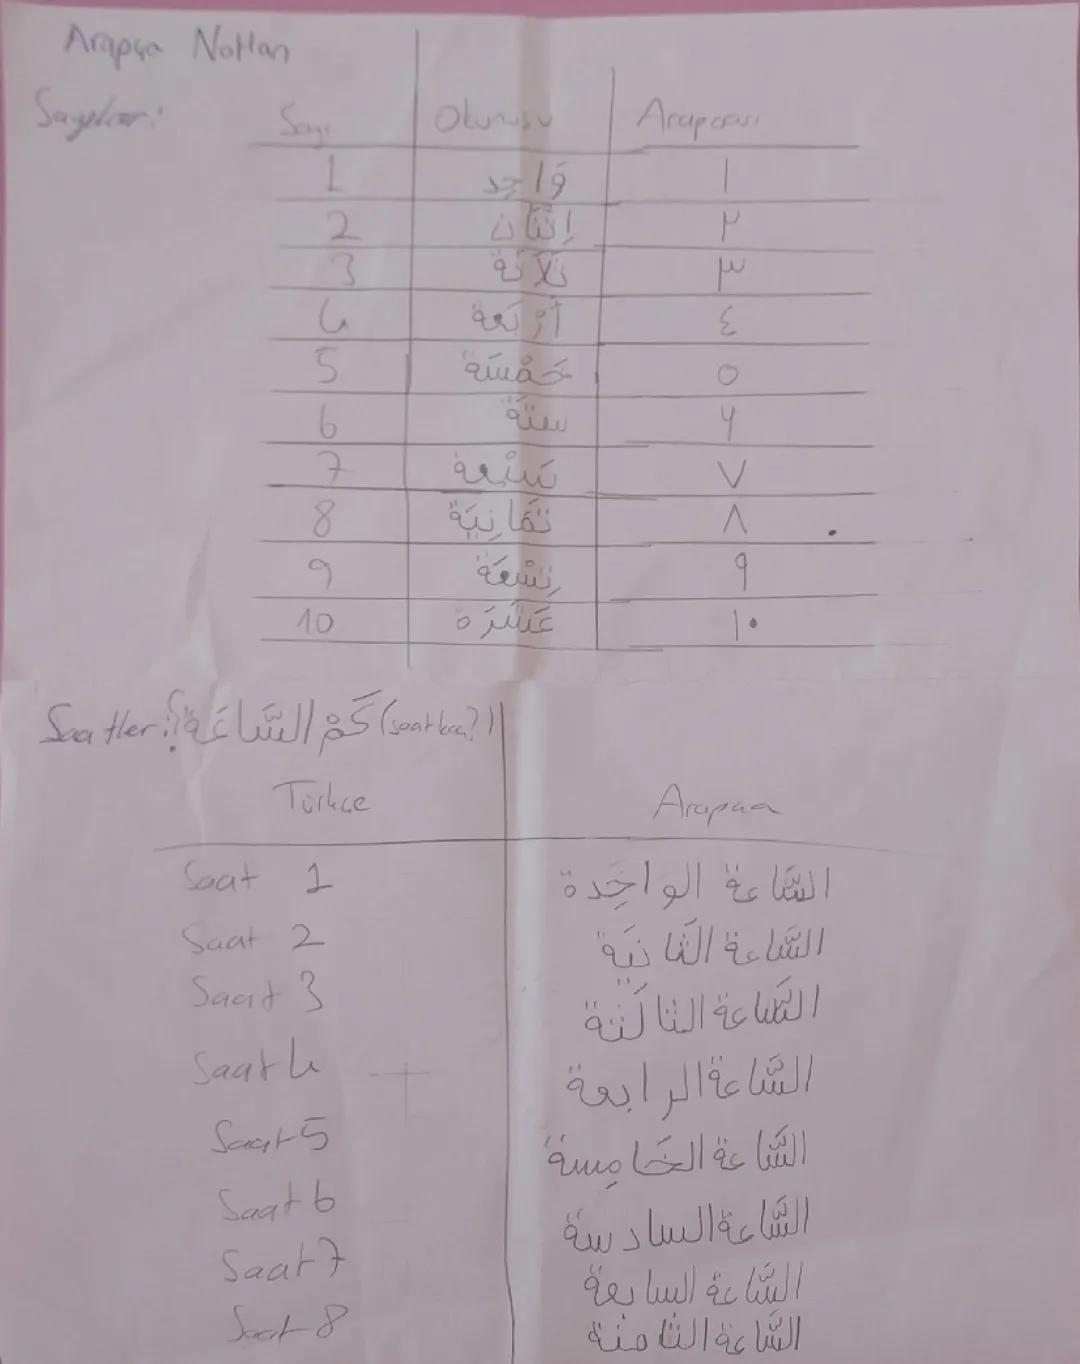 Arapça Notları
Sayılar:
Sayı Okunuşu Arapçası
1 وَاحِد ١
2 إثنَان ٢
3 ثَلَاثَة ٣
4 أرْبَعة ٤
5 خَمْسَة ٥
6 ستَة ٦
7 سَبْعة ٧
8 ثَمَانِيَة ٨
9 تِسْعَة ٩
10 عَشَرَة ١٠
Saatler: كَمْ السَّاعَة؟ (saat kaç?)
Türkçe Arapça
Saat 1 السَّاعة الواحِدة
Saat 2 السَّاعة الثَانيَة
Saat 3 السَّاعة الثالَثة
Saat 4 السَّاعة الرابعة
Saat 5 السَّاعة الخَامِسة
Saat 6 السَّاعة السادسة
Saat 7 السَّاعة السابعة
Saat 8 السَّاعة الثامنة